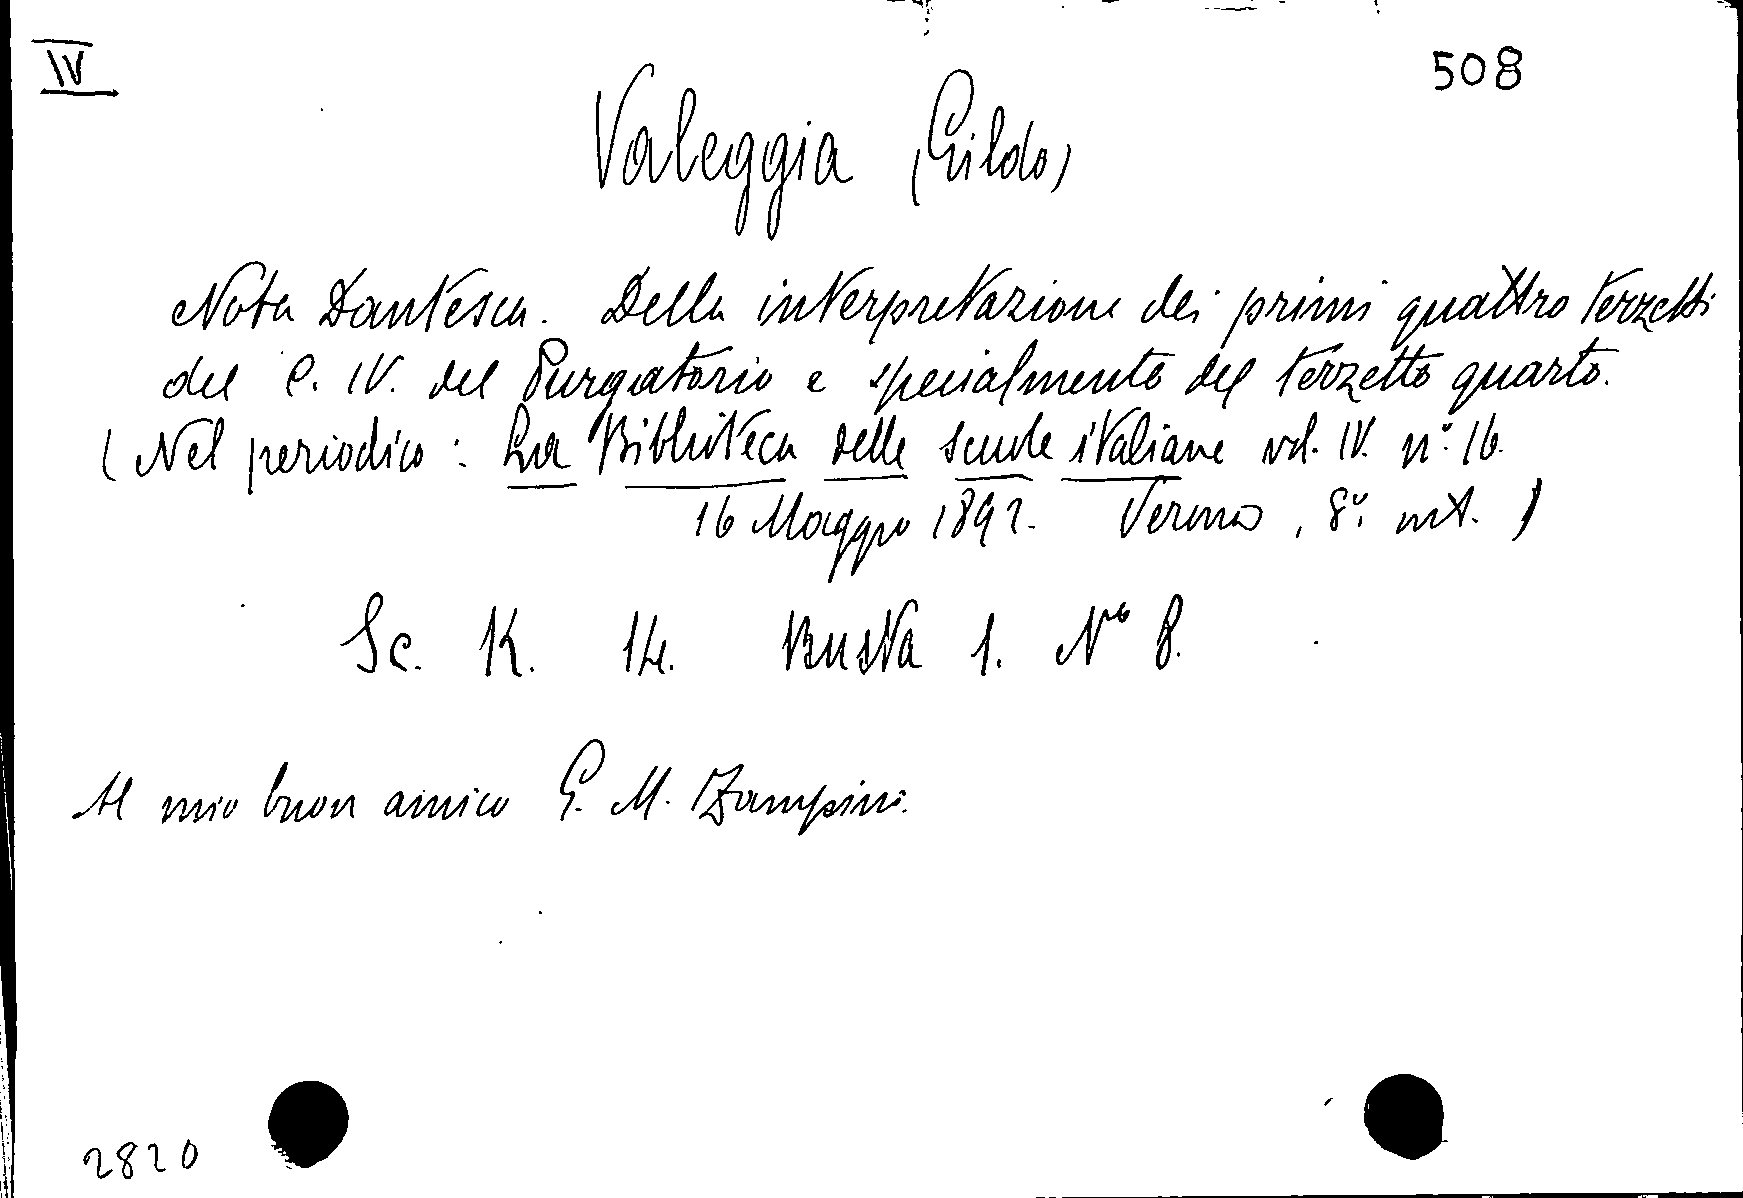 IV
508
Valeggia (Gildo)
Nota Dantesca. Della interpretazione dei primi quattro terzetti
del C. IV. del Purgatorio e specialmente del terzetto quarto.
(Nel periodico: La Biblioteca delle scuole italiane vol. IV. n.° 16.
16 Maggio 1892. Verona, 8°. int.)
Sc. K. 14. Busta 1. N° 8.
Al mio buon amico G. M. Zampini.
2820